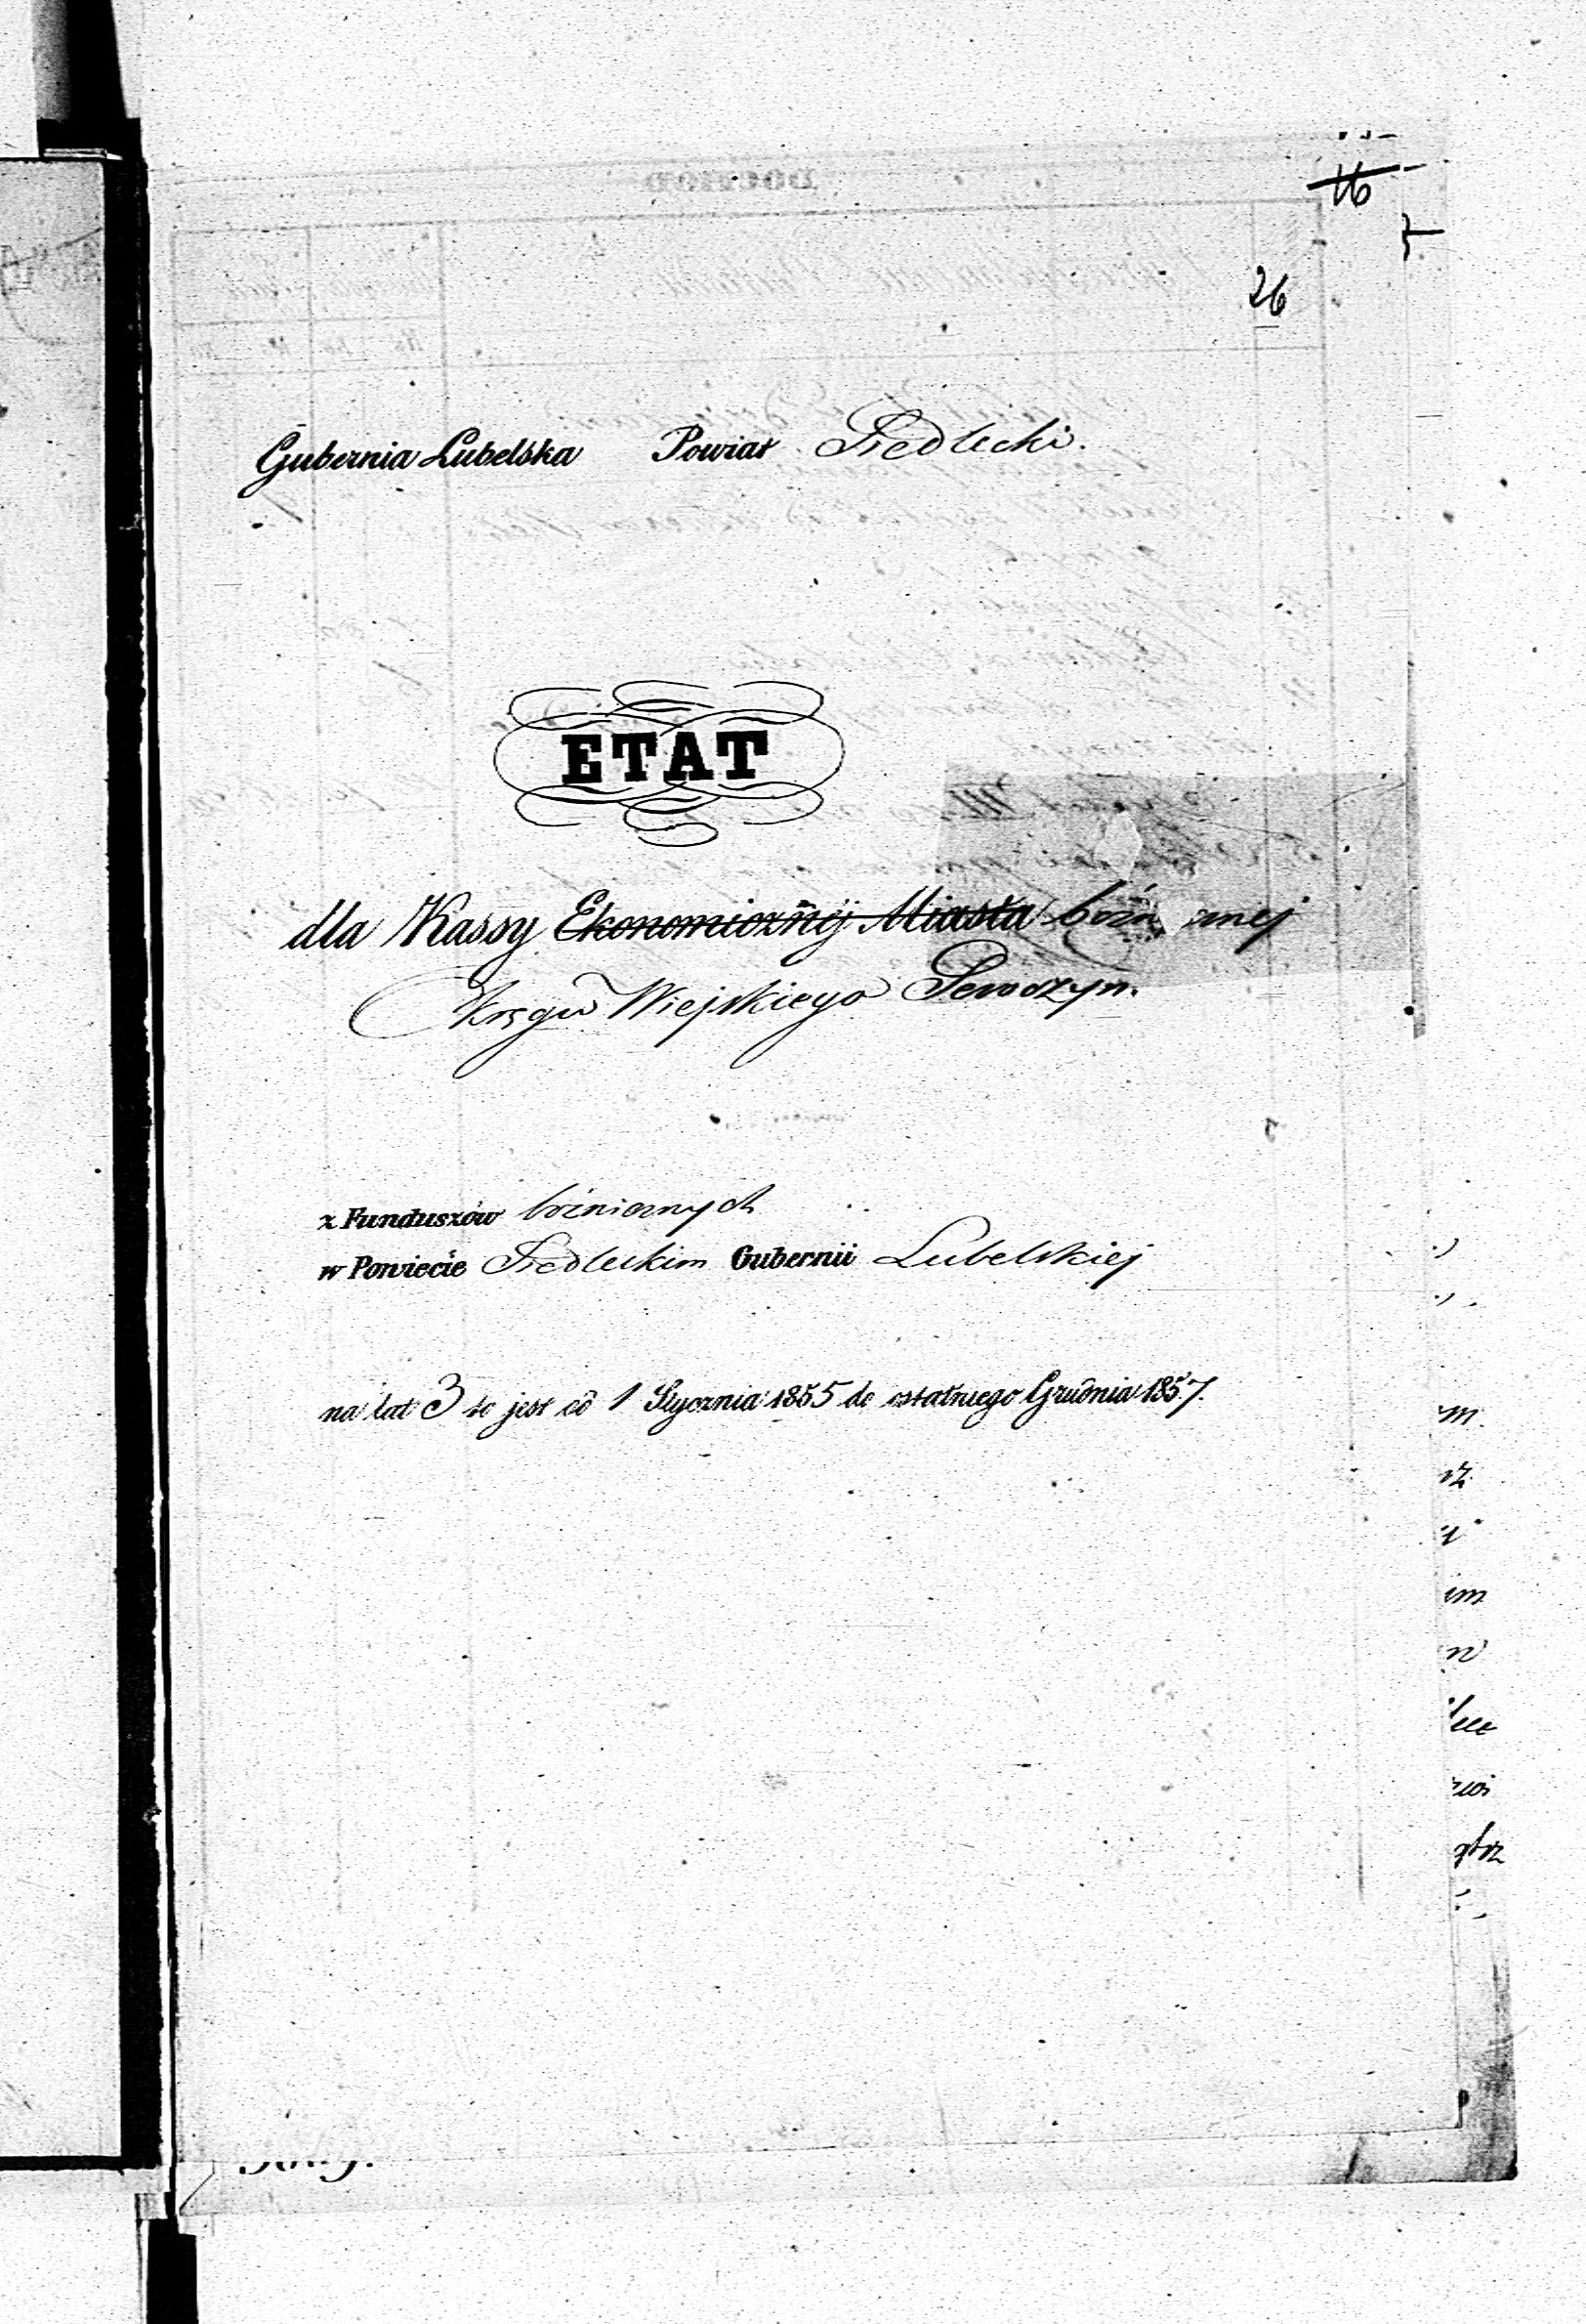 16
26
Gubernia Lubelska Powiat Siedlecki.
ETAT
dla Kassy Ekonomicznéj Miasta bóżnicznej
Okręgu Wiejskiego Seroczyn.
z Funduszów bóżnicznych
w Powiecie Siedleckim Gubernii Lubelskiej
na lat 3 to jest od 1 Stycznia 1855 do ostatniego Grudnia 1857.